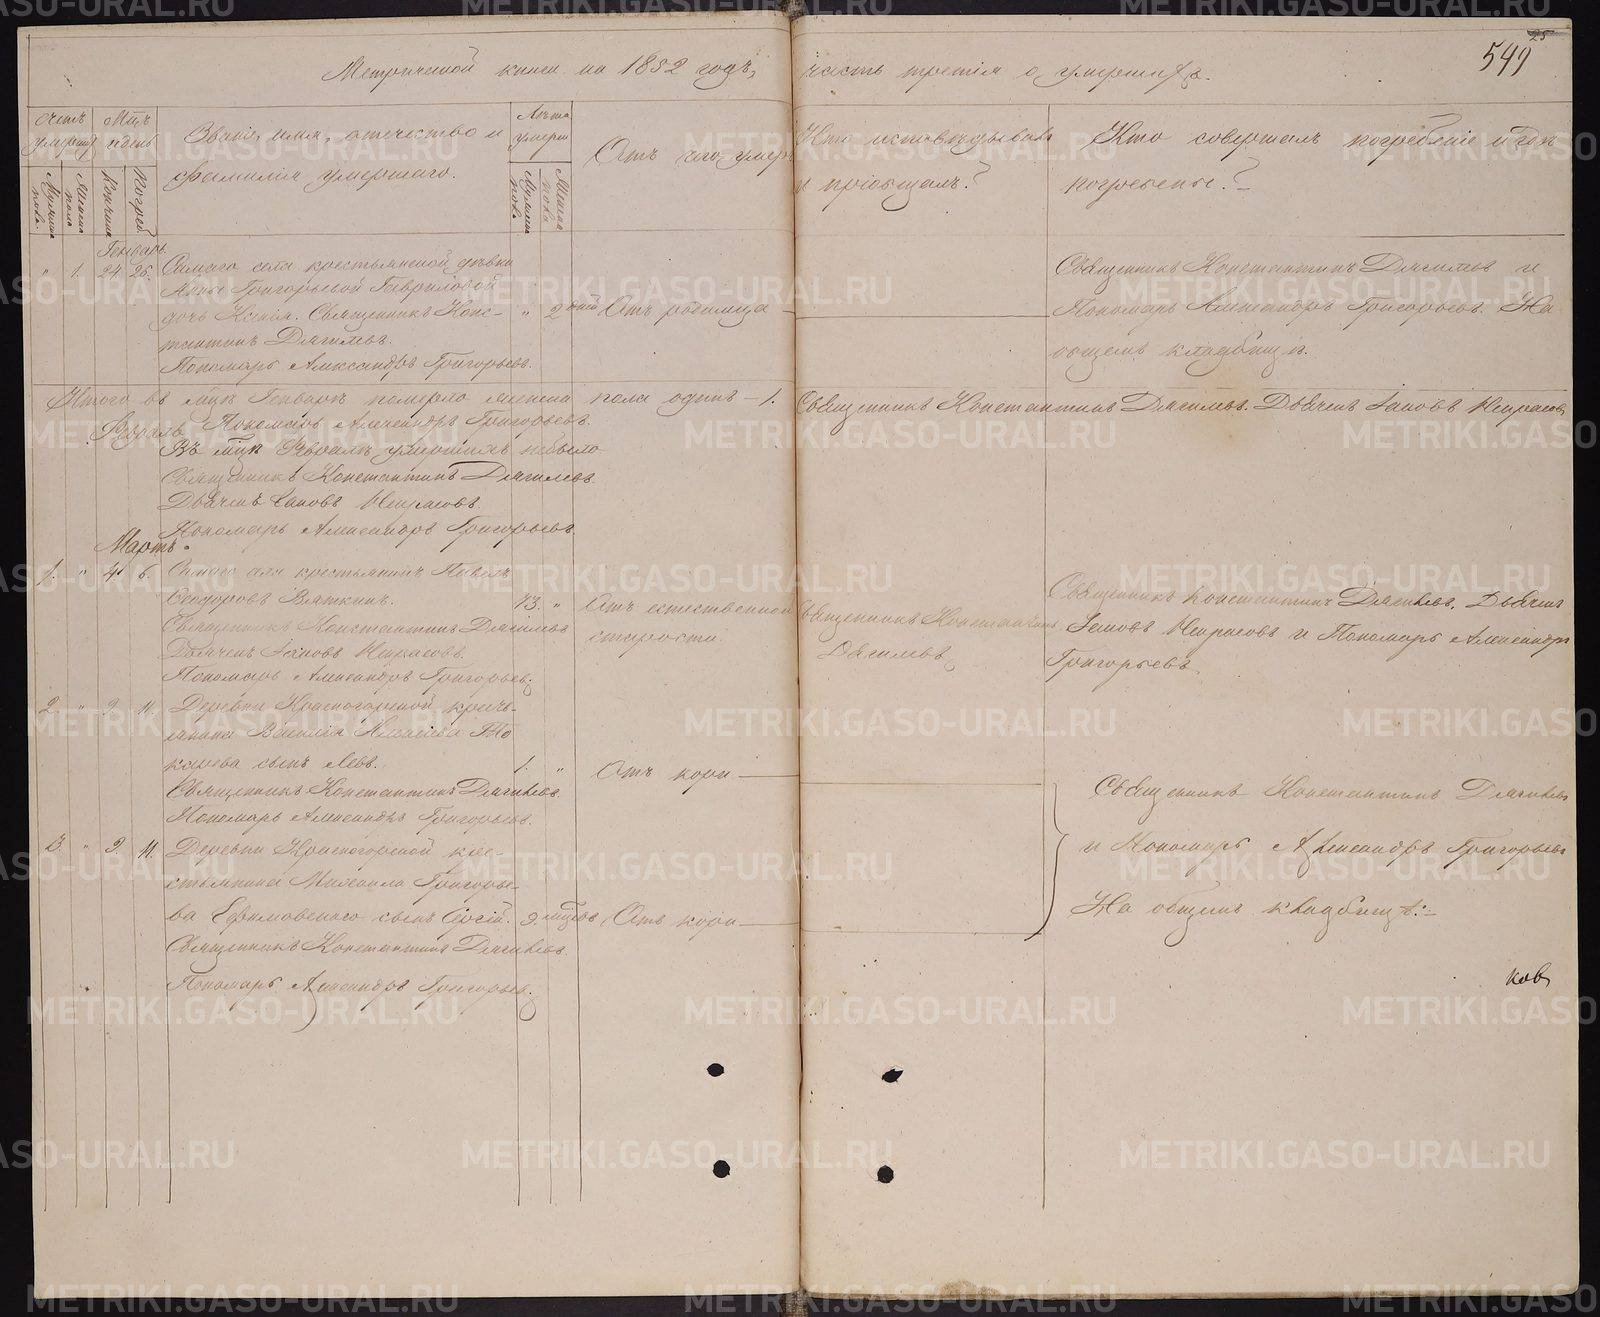 Метрической книги на 1852 годъ, часть третія о умершихъ.
25
549
Счетъ умершихъ
Мцъ и день
Званіе, имя, отечество и
фамилія умершаго.
Лѣта умерш
Отъ чего умеръ
Кто исповѣдывалъ
и пріобщалъ?
Кто совершалъ погребеніе и гдѣ
погребены?
Мужеска пола
Женска пола
Кончина
Погреб
Мужеска пола
Женска пола
Генварь
" 1. 24. 26. Самаго села крестьянской дѣвки
Анны Григорьевой Гавриловой
дочь Ксенія. Священникъ Конс-
тантинъ Дягилевъ.
Пономарь Александръ Григорьевъ.
" 2 дней Отъ родимца
Священникъ Константинъ Дягилевъ и
Пономарь Александръ Григорьевъ. На
общемъ кладбищѣ.
Итого въ мцѣ Генварѣ померло женска пола одинъ — 1. Священникъ Константинъ Дягилевъ. Дьячекъ Іаковъ Некрасовъ
Пономарь Александръ Григорьевъ.
Февраль
Въ мцѣ Февралѣ умершихъ небыло
Священникъ Константинъ Дягилевъ.
Дьячекъ Іаковъ Некрасовъ.
Пономарь Александръ Григорьевъ.
Мартъ.
1. " 4. 6. Самаго села крестьянинъ Павелъ
Ѳеодоровъ Вяткинъ.
Священникъ Константинъ Дягилевъ
Дьячекъ Іаковъ Некрасовъ.
Пономарь Александръ Григорьевъ.
73. " Отъ естественной
старости.
Священникъ Константинъ
Дягилевъ
Священникъ Константинъ Дягилевъ, Дьячекъ
Іаковъ Некрасовъ и Пономарь Александръ
Григорьевъ
2. " 9. 11. Деревни Красногорской кресть-
янина Василія
сынъ Левъ.
Священникъ Константинъ Дягилевъ.
Пономарь Александръ Григорьевъ.
1. " Отъ кори
3. " 9. 11. Деревни Красногорской кре-
стьянина Михаила Григорье-
ва Ефимовскаго сынъ Сергій. 9. мцевъ Отъ кори
Священникъ Константинъ Дягилевъ.
Пономарь Александръ Григорьевъ.
Священникъ Константинъ Дягилевъ
и Пономарь Александръ Григорьевъ
На общемъ кладбищѣ.
ков
METRIKI.GASO-URAL.RU